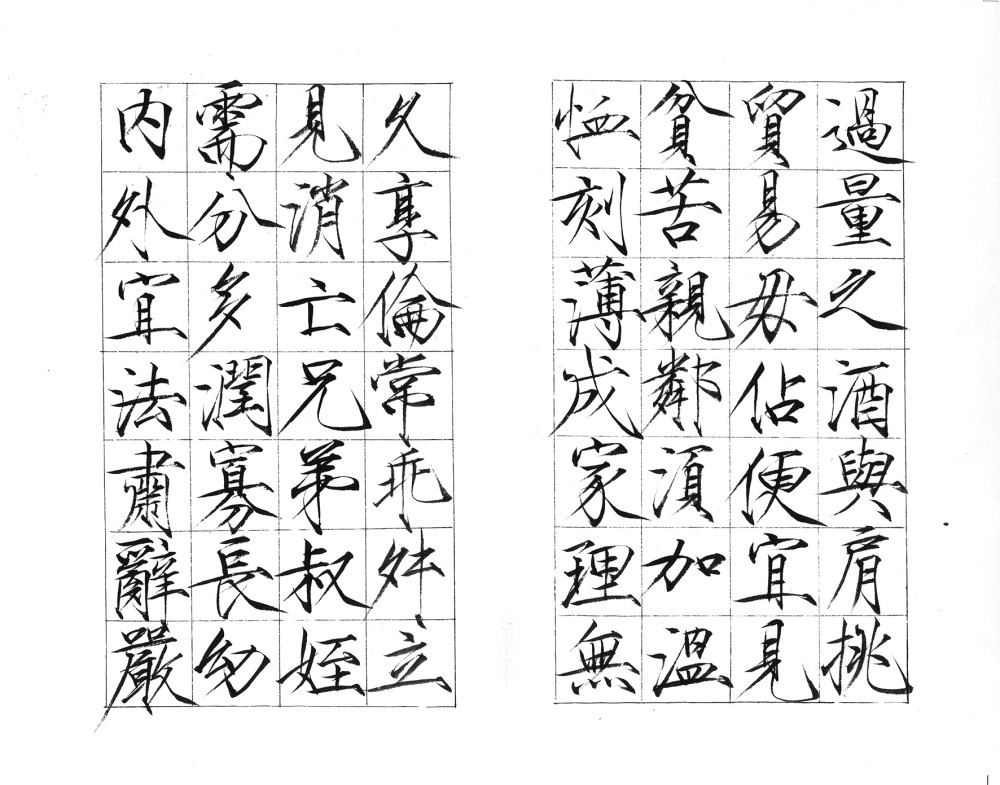 過量之酒與肩挑
貿易毋佔便宜見
貧苦親鄰須加溫
恤刻薄成家理無
久享倫常乖舛立
見消亡兄弟叔姪
需分多潤寡長幼
內外宜法肅辭嚴